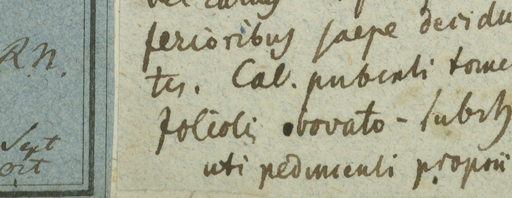 R.N.
Sept
Oct
ferioribus saepe decidu
tis. Cal. pubenti tome
foliolis obovato-subrh
uti pedunculi proprii